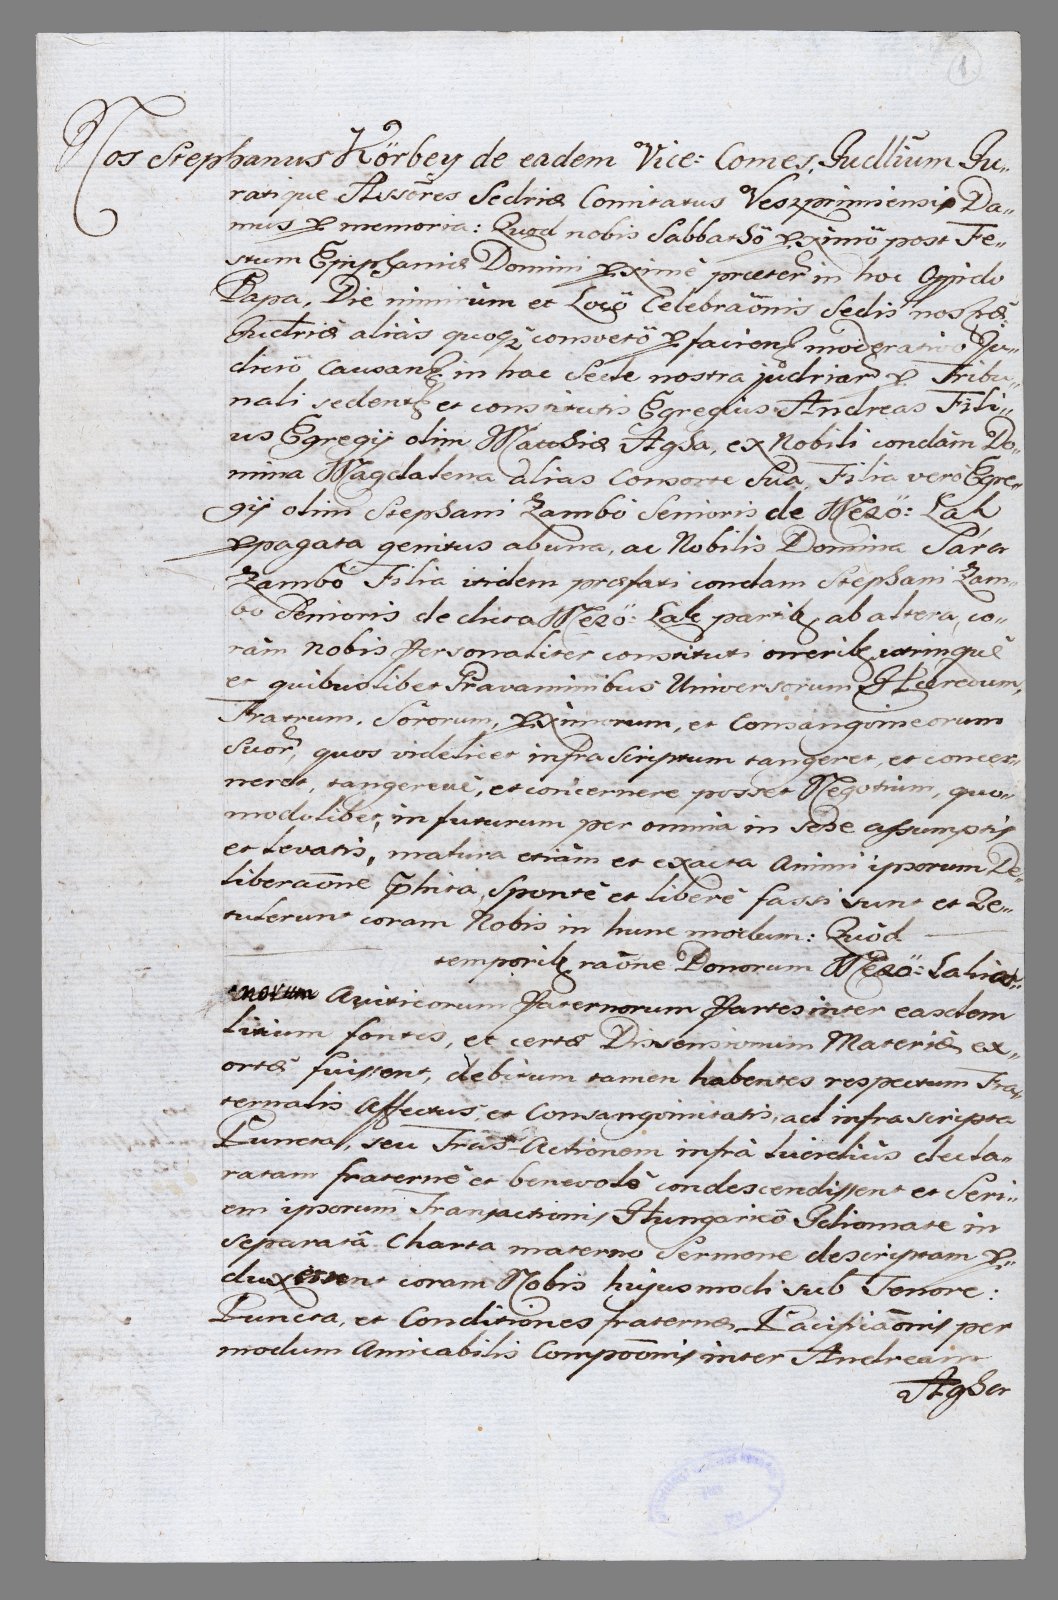 1
Nos Stephanus Körbey de eadem Vice: Comes, Judlium Ju-
ratique Assores Sedriæ Comitatus Veszprimiensis Da-
mus p. memoria: Quod nobis Sabbathö pximö post Fe-
stum Epiphaniæ Domini pximè præterin hoc Oppido
Papa, Die nimirùm et Locö Celebraõnis Sedis nostræ
Judriæ aliàs quoq consvetö p. facien moderativo Ju-
diciö Causan in hac Sede nostra judriar p. Tribu-
nali seden et constitutis Egregius Andreas Fili-
us Egregÿ olim Mathiæ Agha, ex Nobili condàm Do-
mina Magdalena aliàs Consorte Sua, Filia vero Egre-
gÿ olim Stephani Zambó Senioris de Mezö: Lak
ppagata genitus ab una, ac Nobilis Domina Sára
Zambó Filia itidem præfati condam Stephani Zam-
bó Senioris de dicta Mezö: Lak partib, ab altera, co-
ràm nobis Personaliter constituti onerib utrinquè
et quibuslibet Gravaminibus Universorum Hæredum,
Fratrum, Sororum, pximorum, et Consangvineorum
Suor, quos videlicet infra Scriptum tangeret, et concer-
neret, tangerevè, et concernere posset Negotium, quo-
modolibet, in futurum per omnia in sese assumptis
et levatis, matura etiàm et exacta Animi ipsorum De-
liberaõne p̃hita, Spontè et liberè fassi sunt et Re-
tulerunt coram Nobis in hunc modum: Quòd
temporib, raõne Bonorum Mezö: Lakia-
norum Aviticorum Paternorum Partes inter easdem
litium fontes, et certæ Dissensionum Materiæ ex-
ortæ fuissent, debitum tamen habentes respectum Fra-
ternalis Affectus, et Consangvinitatis, ad infra scripta
Puncta, seu Trãs-Actionem infrà lucidiùs decla-
ratam fraternè et benevolè condescendissent et Seri-
em ipsorum Transactionis Hungaricõ Idiomate in
separatâ Charta materno Sermone descriptam p-
duxissent coram Nobis hujusmodi sub Tenore:
Puncta, et Conditiones fraternæ Pacificaõnis per
modum Amicabilis Compoõnis inter Andream
Agha